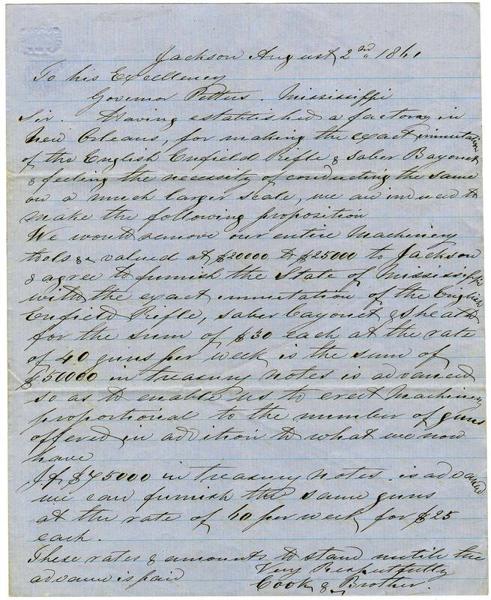 Jackson August 2nd 1861
To his Excellency
Governor Pettus. Mississippi
Sir. Having established a factory in
New Orleans, for making the exact immitation
of the English Enfield Rifle & Saber Bayonet
& feeling the necessity of conducting the same
on a much larger scale, we are induced to
make the following proposition
We would remove our entire Machinery
tools & valued at $20000 to $25000 to Jackson
& agree to furnish the State of Mississippi
with the exact immitation of the English
Enfield Rifle, saber bayonet & sheath
for the sum of $30 each at the rate
of 40 guns per week is the sum of
$50000 in treasury notes is advanced
so as to enable us to erect Machinery
proportional to the number of guns
offered in addition to what we now
have
If $75000 in treasury notes is advanced
we can furnish the same guns
at the rate of 40 per week for $25
each.
These rates & amounts to stand untill the
advance is paid
Very Respectfully
Cook & Brother.